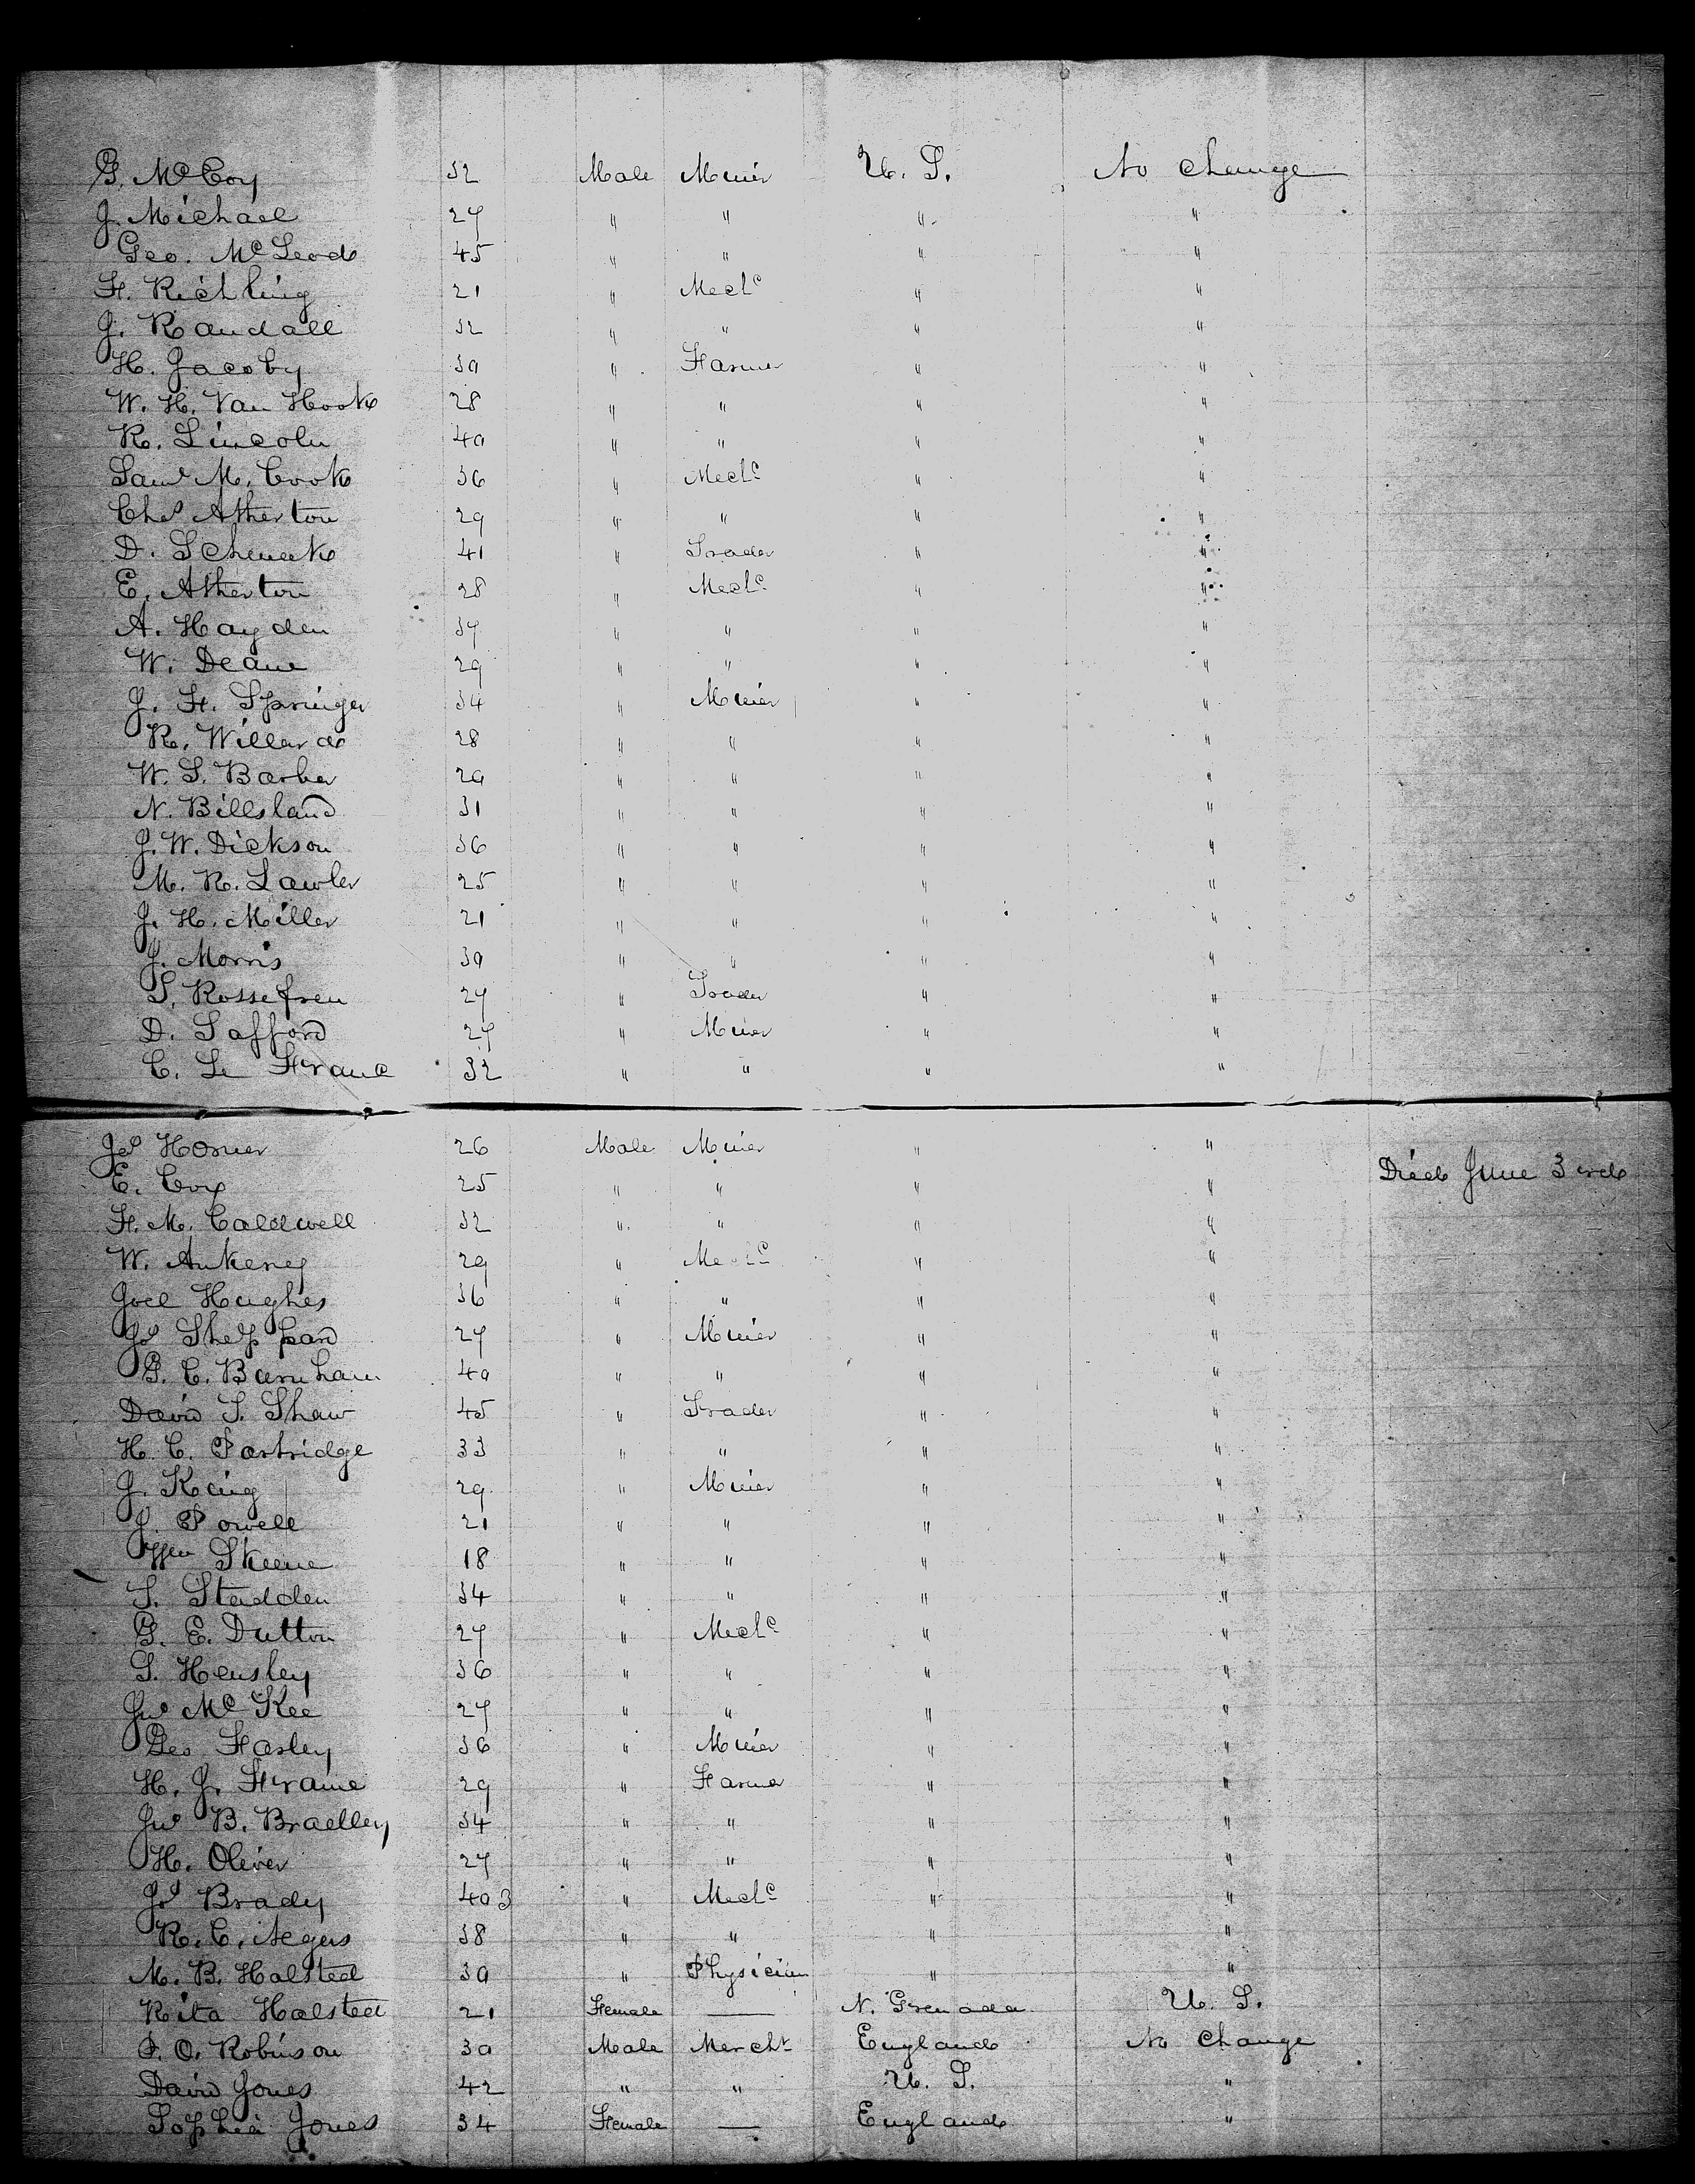 G. McCoy 32 Male Miner U. S. No Change
J. Michael 27 " " " "
Geo. McLeod 45 " " " "
F. Richling 21 " Mechc " "
J. Randall 32 " " " "
H. Jacoby 30 " Farmer " "
W. H. Van Hook 28 " " " "
R. Lincoln 40 " " " "
Saml M. Cook 36 " Mechc " "
Chs Atherton 29 " " " "
D. Schenck 41 " Trader " "
E. Atherton 28 " Mechc " "
A. Hayden 37 " " " "
W. Deane 29 " " " "
J. F. Springer 34 " Miner " "
R. Willard 28 " " " "
W. S. Barber 29 " " " "
N. Billsland 31 " " " "
J. W. Dickson 36 " " " "
M. R. Lawler 25 " " " "
J. H. Miller 21 " " " "
J. Morris 30 " " " "
S. 27 " Trader " "
D. Safford 27 " Miner " "
C. Le Franc 32 " " " "
Js Homer 26 Male Miner " "
E. Coy 25 " " " " Died June 3rd
F. M. Caldwell 32 " " " "
W. Ankeney 29 " Mechc " "
Joel Hughes 36 " " " "
Js Sheppard 27 " Miner " "
G. C. Barnham 40 " " " "
David S. Shaw 45 " Trader " "
H. C. Partridge 33 " " " "
J. King 29 " Miner " "
J. Powell 21 " " " "
Skeene 18 " " " "
S. Stadden 34 " " " "
G. E. Dutton 27 " Mechc " "
S. Hensley 36 " " " "
Jno McKee 27 " " " "
Geo Farley 36 " Miner " "
H. J. Frame 29 " Farmer " "
Jno B. Bradley 34 " " " "
H. Oliver 27 " " " "
Js Brady 403 " Mechc " "
R. C. Negus 38 " " " "
M. B. Halsted 30 " Physician " "
Rita Halsted 21 Female — N. Grenada U. S.
P. O. Robinson 30 Male Mercht England No Change
David Jones 42 " " U. S. "
Sophia Jones 34 Female — England "